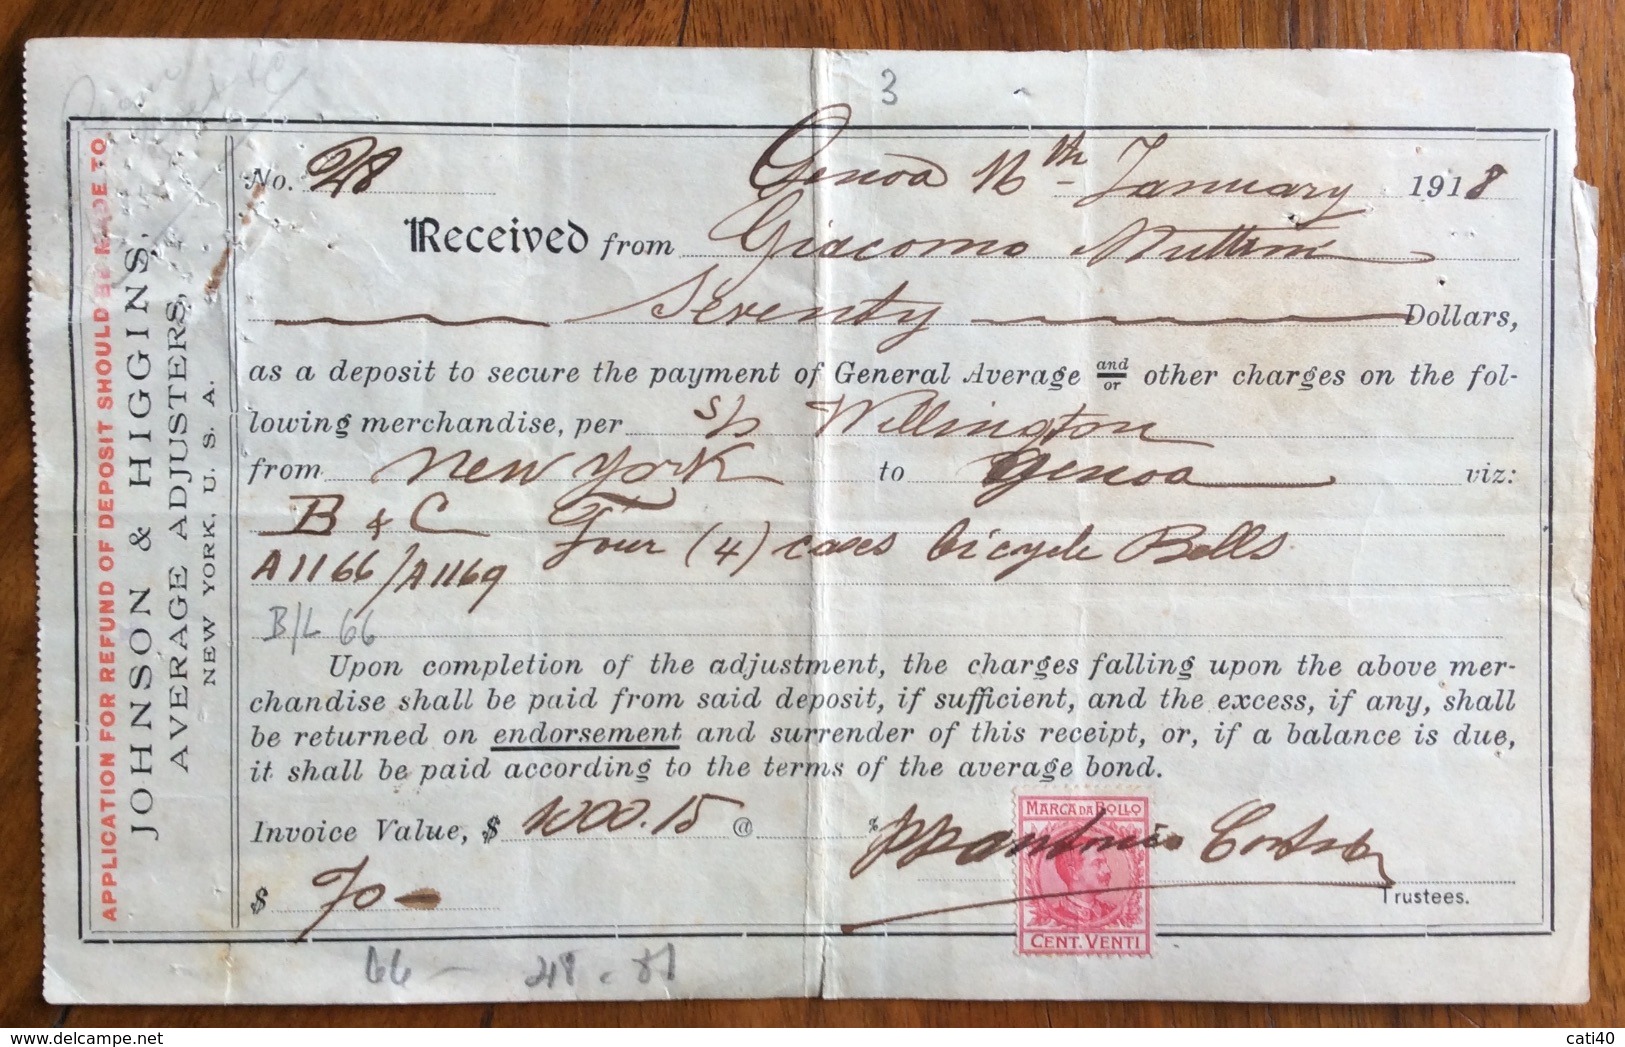 3
APPLICATION FOR REFUND OF DEPOSIT SHOULD BE MADE TO
JOHNSON & HIGGINS,
AVERAGE ADJUSTERS,
NEW YORK, U. S. A.
No. 28 Genoa 16th January 1918
Received from Giacomo
Seventy Dollars,
as a deposit to secure the payment of General Average and/or other charges on the fol-
lowing merchandise, per s/s Wellington
from New York to Genoa viz:
B & C Four (4) cases bicycle Bells
A1166/A1169
B/L 66
Upon completion of the adjustment, the charges falling upon the above mer-
chandise shall be paid from said deposit, if sufficient, and the excess, if any, shall
be returned on endorsement and surrender of this receipt, or, if a balance is due,
it shall be paid according to the terms of the average bond.
Invoice Value, $ 1000.15 @ %
MARCA DA BOLLO
CENT. VENTI
$ 70
Trustees.
66 —
cati40